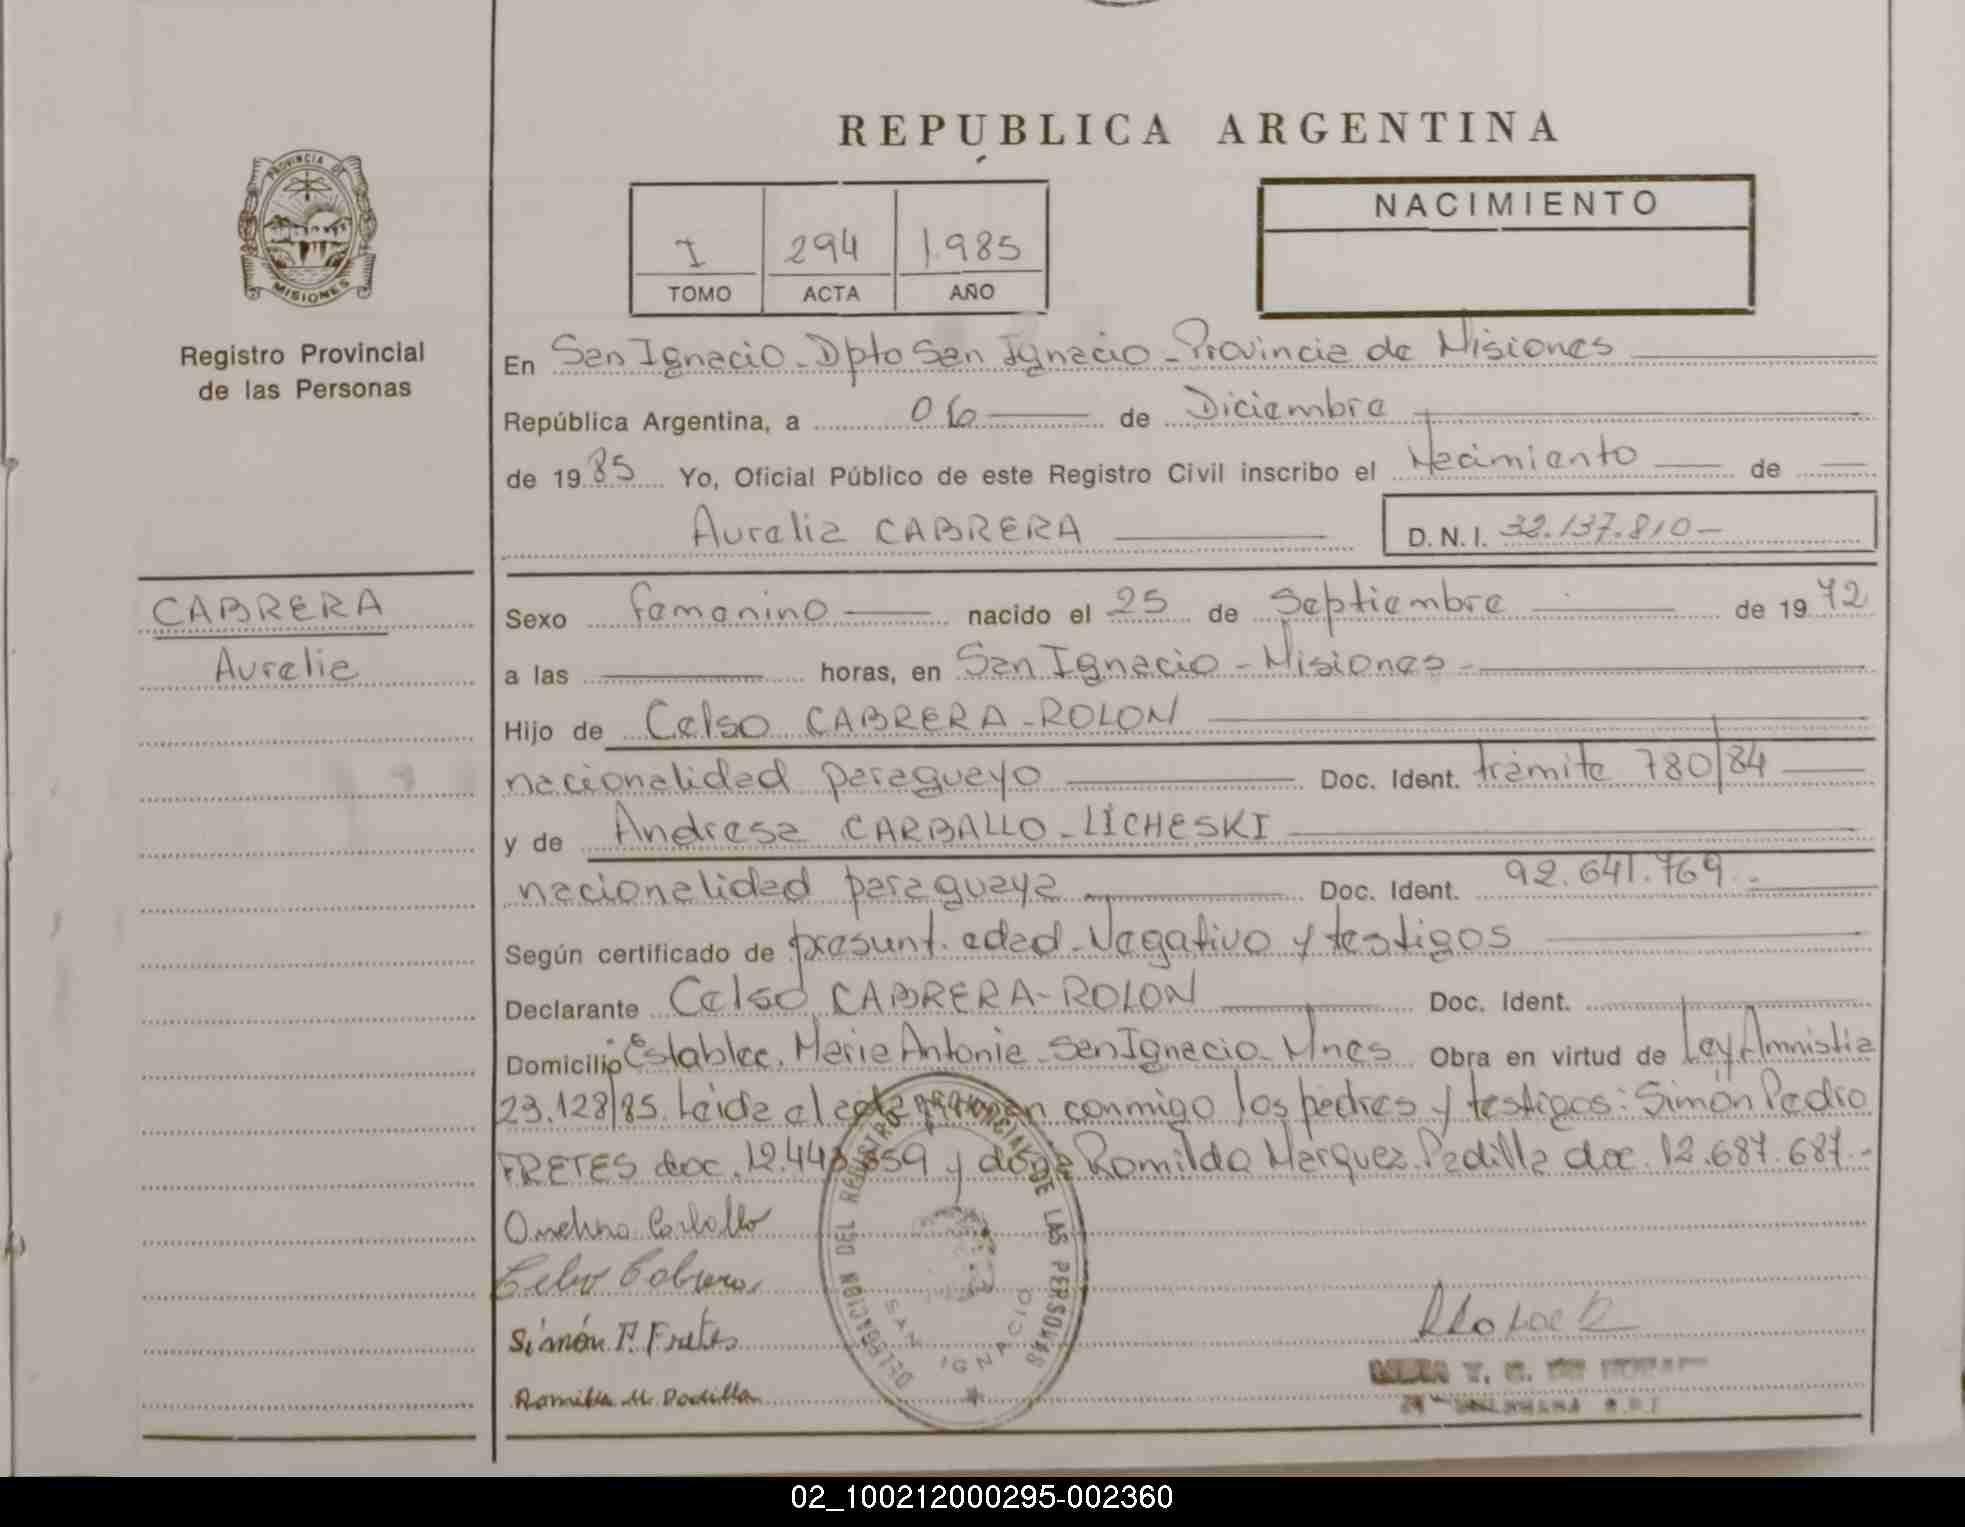 REPUBLICA ARGENTINA
PROVINCIA DE
MISIONES
Registro Provincial
de las Personas
I 294 1.985
TOMO ACTA AÑO
NACIMIENTO
En San Ignacio - Dpto San Ignacio - Provincia de Misiones
República Argentina, a 06 de Diciembre
de 1985 Yo, Oficial Público de este Registro Civil inscribo el Nacimiento de
Aurelia CABRERA D.N.I. 32.137.810-
CABRERA
Aurelia
Sexo femenino nacido el 25 de Septiembre de 1972
a las horas, en San Ignacio - Misiones -
Hijo de Celso CABRERA-ROLON
nacionalidad paraguayo Doc. Ident. trámite 780/84
y de Andresa CARBALLO-LICHESKI
nacionalidad paraguaya Doc. Ident. 92.641.769.-
Según certificado de presunt. edad-Negativo y testigos
Declarante Celso CABRERA-ROLON Doc. Ident.
Domicilio Establec. Maria Antonia-San Ignacio-Mnes Obra en virtud de Ley Amnistia
23.128/85. Leida el acta firman conmigo los padres y testigos: Simón Pedro
FRETES doc. 12.448.659 y doña Romilda Marquez Padilla doc. 12.687.687.-
Carballo
Celso Cabrera
Simón P. Fretes
Romilda M. Padilla
DELEGACION DEL REGISTRO PROVINCIAL DE LAS PERSONAS
SAN IGNACIO
02_100212000295-002360